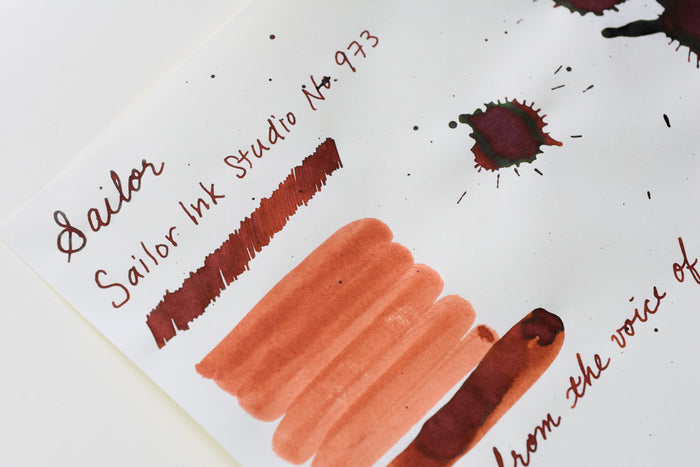 Sailor
Sailor Ink Studio No. 973
from the voice of